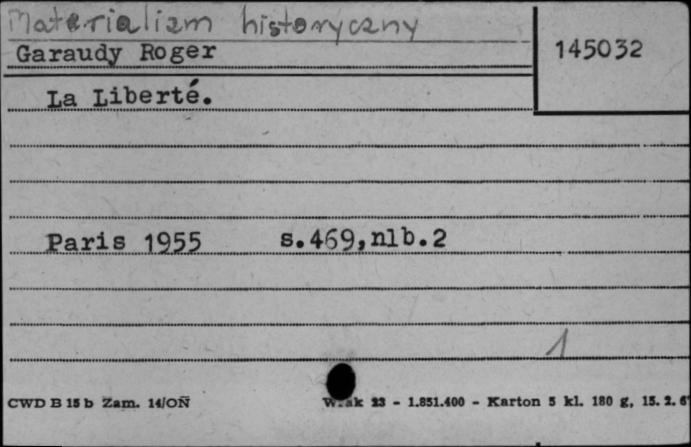 Materializm historyczny
Garaudy Roger
145032
La Liberté.
Paris 1955 s.469,nlb.2
1
CWD B 15 b Zam. 14/OÑ
23 - 1.851.400 - Karton 5 kl. 180 g, 15. 2.